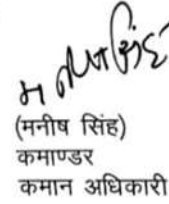 मनीष सिंह
(मनीष सिंह)
कमाण्डर
कमान अधिकारी